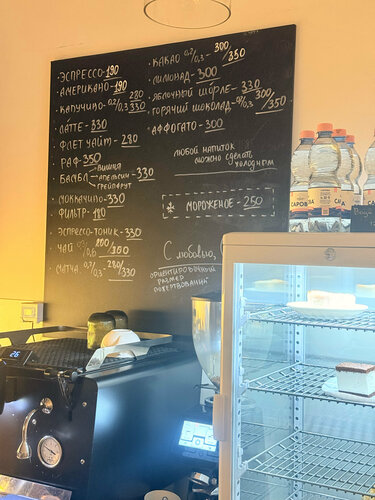 ЭСПРЕССО-190
АМЕРИКАНО-190
КАПУЧИНО-0,2/0,3 280/330
ЛАТТЕ-330
ФЛЕТ УАЙТ-290
РАФ 350
БАМБЛ вишня апельсин грейпфрут-330
МОККАЧИНО-330
ФИЛЬТР-180
ЭСПРЕССО-ТОНИК-330
ЧАЙ 0,3
МАТЧА 0,2/0,3-280/330
КАКАО 0,2/0,3-300/350
ЛИМОНАД-300
ЯБЛОЧНЫЙ ШОРЛЕ-330
ГОРЯЧИЙ ШОКОЛАД-0,2/0,3 300/350
АФФОГАТО-300
ЛЮБОЙ НАПИТОК
МОЖНО СДЕЛАТЬ
ХОЛОДНЫМ
МОРОЖЕНОЕ-250
С любовью,
ОРИЕНТИРОВОЧНЫЙ
РАЗМЕР
ПОЖЕРТВОВАНИЙ
САРОВ